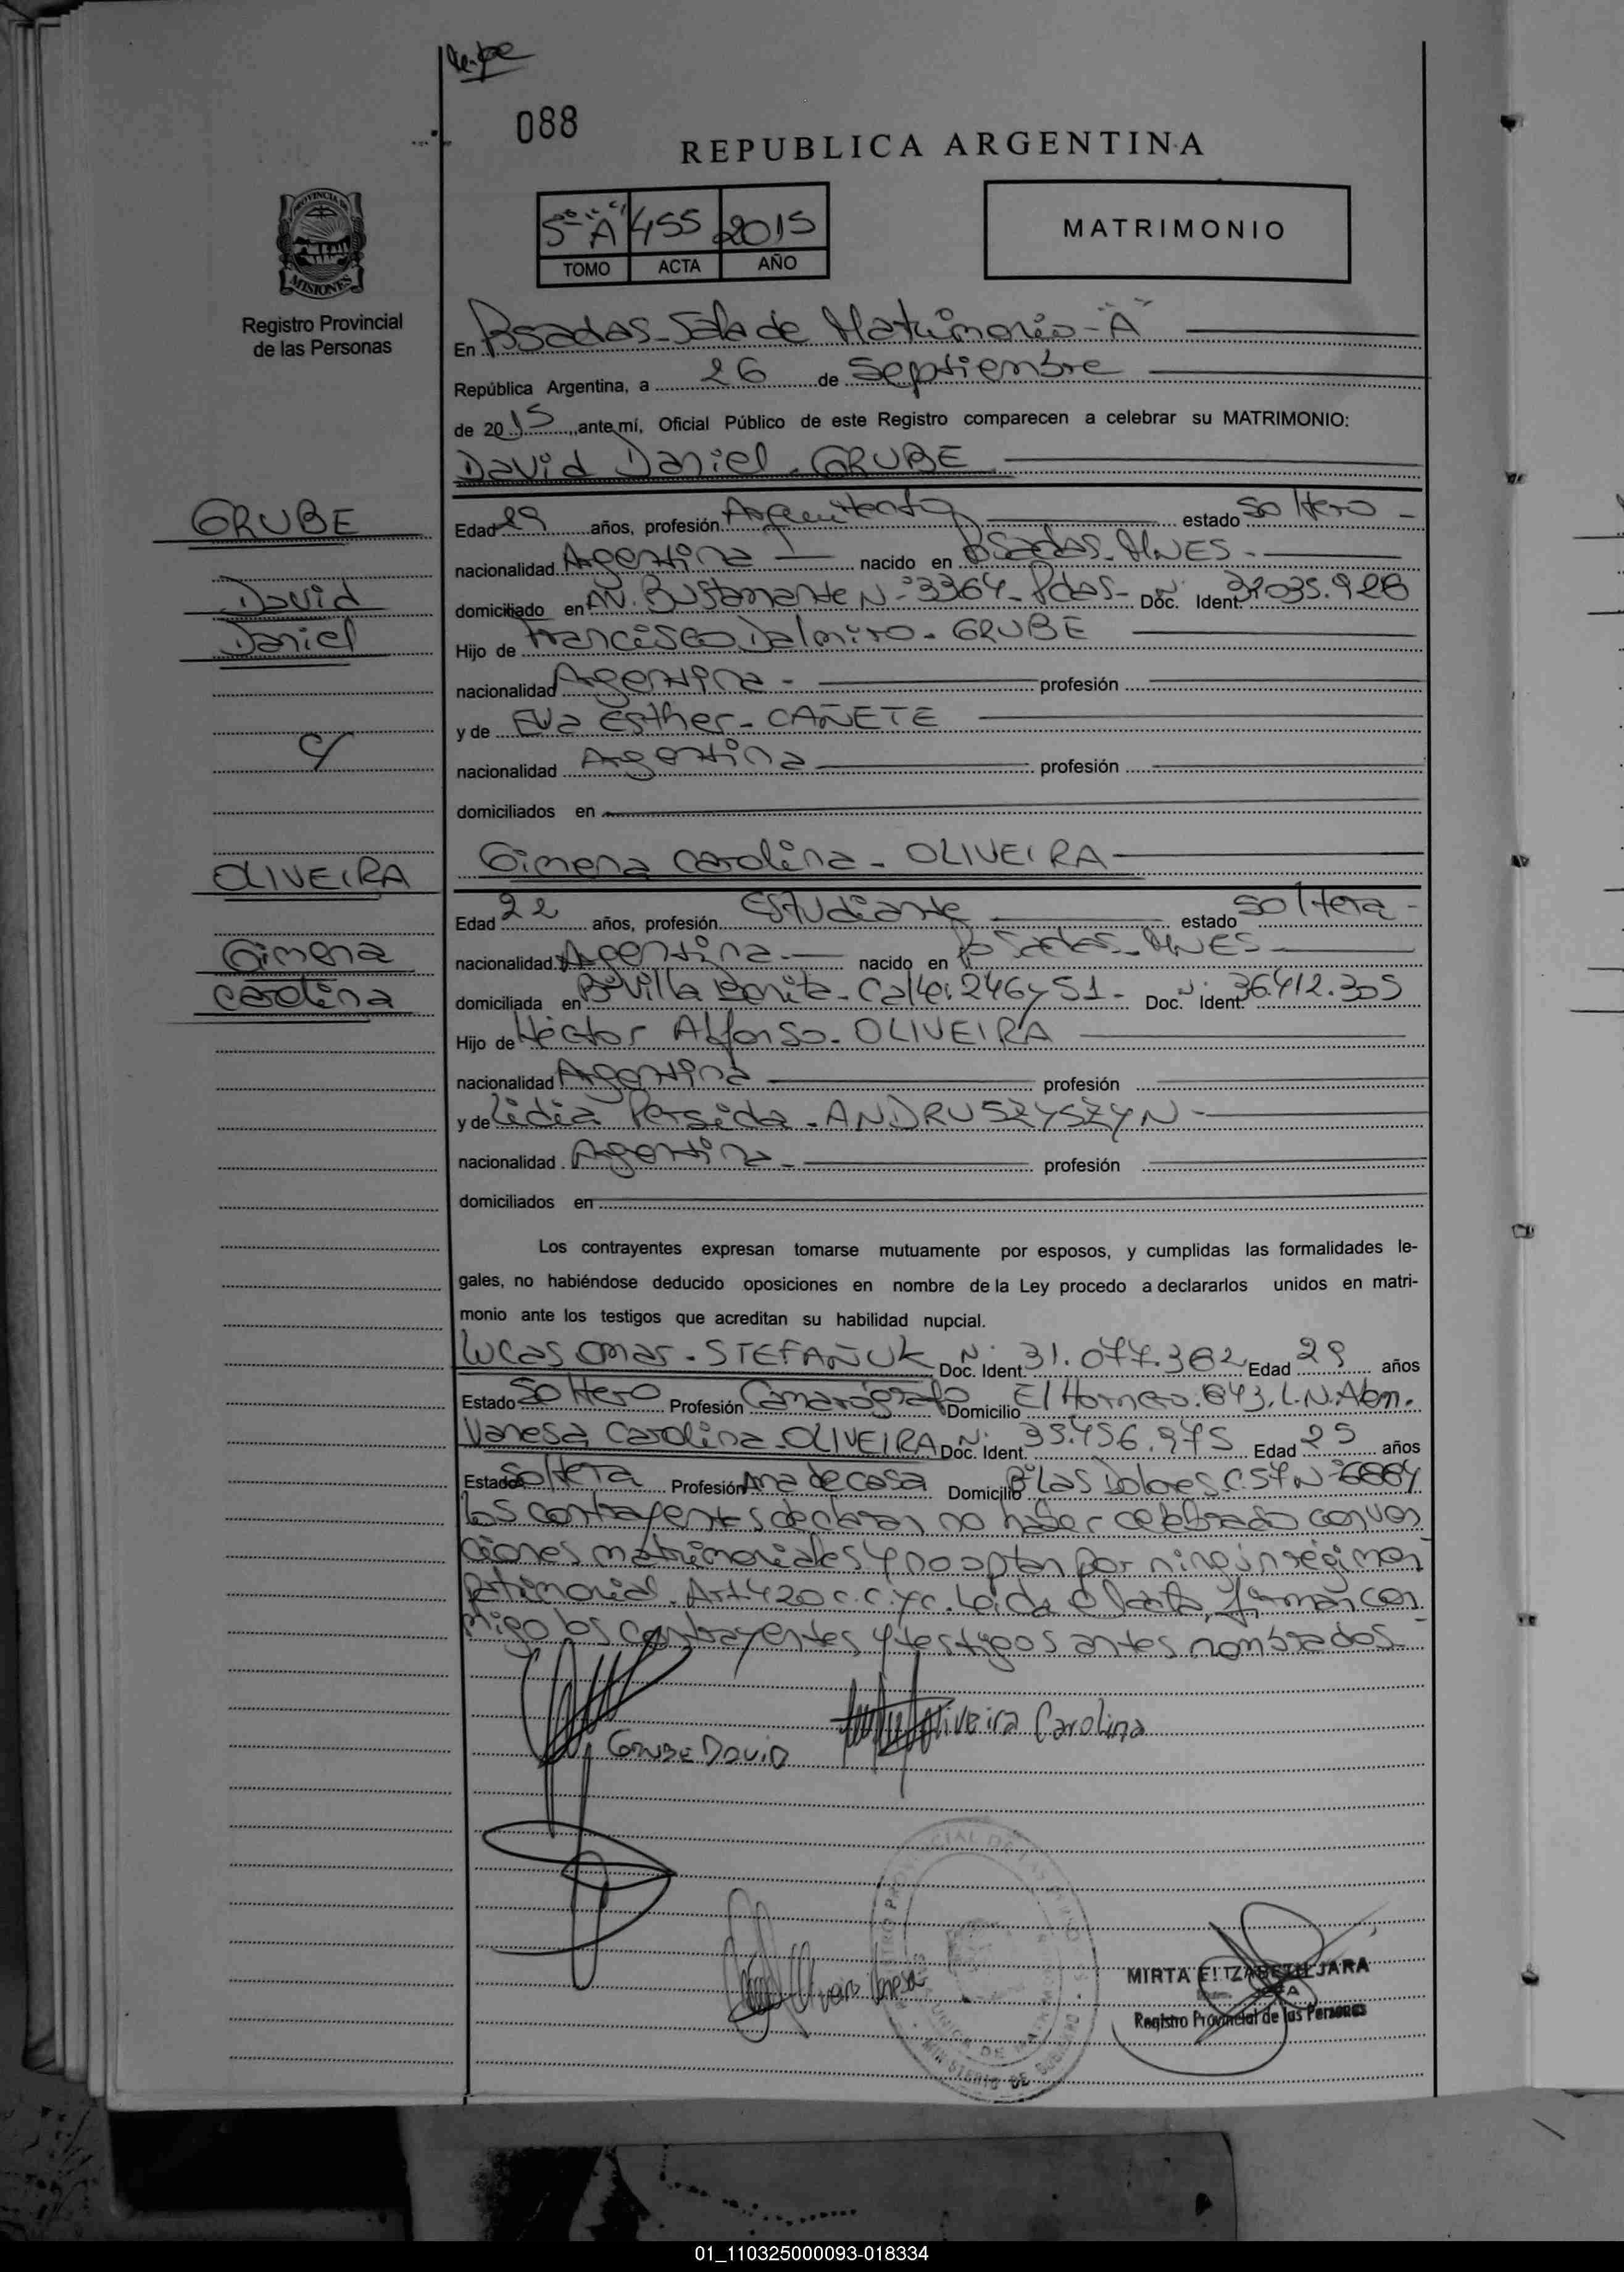 088
REPUBLICA ARGENTINA
5º "A" 455 2015
TOMO ACTA AÑO
MATRIMONIO
PROVINCIA DE
MISIONES
Registro Provincial
de las Personas
En Posadas - Sala de Matrimonio - "A"
República Argentina, a 26 de Septiembre
de 2015, ante mí, Oficial Público de este Registro comparecen a celebrar su MATRIMONIO:
David Daniel - GRUBE
GRUBE
David
Daniel
c/
OLIVEIRA
Gimena
Carolina
Edad 29 años, profesión Arquitecto estado Soltero -
nacionalidad Argentina nacido en Posadas - MNES -
domiciliado en AV. Bustamante Nº 3364 - Pdas - Doc. Ident. 32.035.928
Hijo de Francisco Dalmiro - GRUBE
nacionalidad Argentina - profesión
y de Eva Esther - CAÑETE
nacionalidad Argentina profesión
domiciliados en
Gimena Carolina - OLIVEIRA
Edad 22 años, profesión Estudiante estado Soltera -
nacionalidad Argentina nacido en Posadas - MNES
domiciliada en Bº Villa Bonita - Calle: 246 y 51 - Doc. Ident. 36.412.305
Hijo de Héctor Alfonso - OLIVEIRA
nacionalidad Argentina profesión
y de Lidia Persida - ANDRUSZYSZYN -
nacionalidad Argentina - profesión
domiciliados en
Los contrayentes expresan tomarse mutuamente por esposos, y cumplidas las formalidades le-
gales, no habiéndose deducido oposiciones en nombre de la Ley procedo a declararlos unidos en matri-
monio ante los testigos que acreditan su habilidad nupcial.
Lucas Omar - STEFAÑUK Doc. Ident. Nº 31.077.362 Edad 29 años
Estado Soltero Profesión Camarógrafo Domicilio El Hornero 843, L.N. Alem.
Vanesa Carolina - OLIVEIRA Doc. Ident. Nº 35.456.975 Edad 25 años
Estado Soltera Profesión Ama de casa Domicilio Bº Las Dolores C. 57 Nº 6884
Los contrayentes declaran no haber celebrado conven
ciones matrimoniales y no optan por ningún régimen
Patrimonial. Art 420 C.C. y C. Leída el acta, firman con
migo los contrayentes y testigos antes nombrados -
GRUBE DAVID Oliveira Carolina
Oliveira Vanesa
MIRTA ELIZABETH JARA
JEFA
Registro Provincial de las Personas
MINISTERIO DE GOBIERNO
01_110325000093-018334